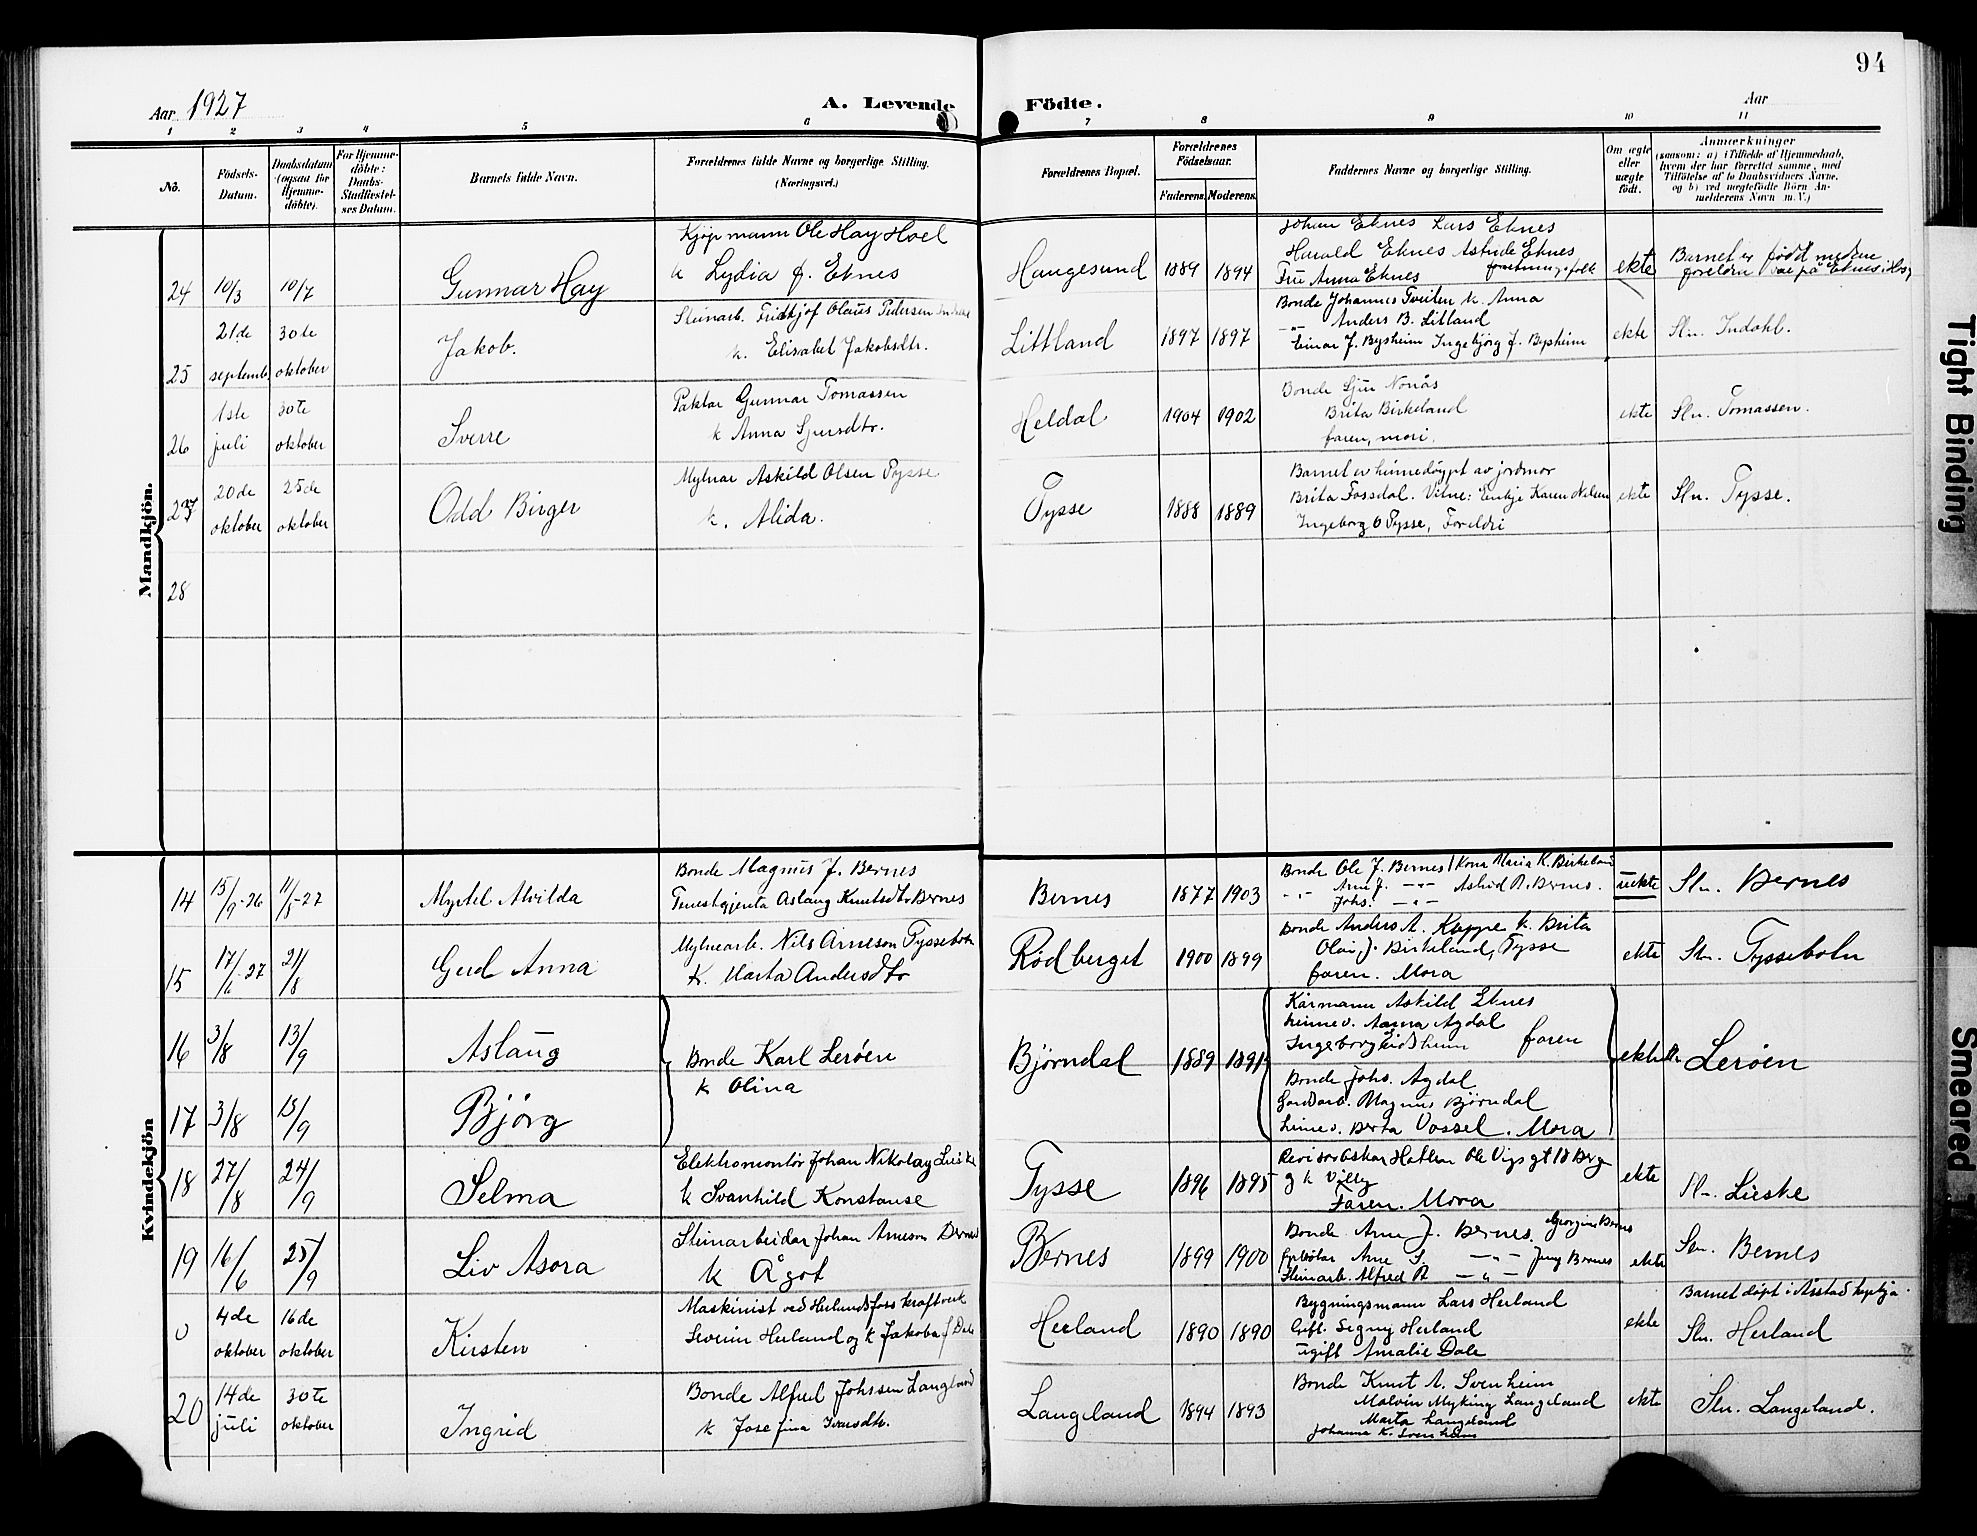 94
Aar 1927
A. Levende Födte.
Aar
1 2 3 4 5 6 7 8 9 10 11
No.
Födsels-Datum.
Daabsdatum (ogsaa for Hjemme-döbte).
For Hjemme-döbte: Daabs-Stadfæstel-ses Datum.
Barnets fulde Navn.
Forældrenes fulde Navne og borgerlige Stilling.
(Næringsvei.)
Forældrenes Bopæl.
Forældrenes Födselsaar.
Faderens. Moderens.
Faddernes Navne og borgerlige Stilling.
Om ægte eller uægte født.
Anmærkninger
(saasom: a) i Tilfælde af Hjemmedaab,
hvem der har forrettet samme, med
Tilföielse af to Daabsvidners Navne.
og b) ved uægtefödte Börn An-
melderens Navn m. V.)
Mandkjön.
24 10/3 10/7 Gunnar Hay
Kjøpmann Ole Hay Hoel
k Lydia f. Eknes
Haugesund 1889 1894
Johan Eknes Lars Eknes
Harald Eknes Astride Eknes
Fru Anna Eknes
ekte
Barnet er født medan
foreldri var på Eknes i Hosg
25 21de september 30te oktober Jakob.
Steinarb. Fridtjof Olaus Pedersen Indahl
k. Elisabet Jakobsdtr.
Littland 1897 1897
Bonde Johannes Tveiten k. Anna
-"- Anders B. Litland
Einar J. Bysheim Ingebjørg J. Bysheim
ekte Sln. Indahl.
26 1ste juli 30te oktober Sverre
Paktar Gunnar Tomassen
k Anna Sjursdtr.
Heldal 1904 1902
Bonde Sjur Nonås
Brita Birkeland
faren, mori.
ekte Sln. Tomassen.
27 20de oktober 25de oktober Odd Birger
Mylnar Askild Olsen Tysse
k. Alida.
Tysse 1888 1889
Barnet er heimedøypt av jordmor
Brita Fossdal. Vitne: Enkje Karen Nilsen
Ingeborg O Tysse, Foreldri
ekte Sln. Tysse.
28
Kvindekjön
14 15/9-26 11/8-27 Myrtel Alvilda
Bonde Magnus J. Bernes
Tenestgjenta Aslaug Knutsdtr Bernes
Bernes 1877 1903
Bonde Ole J. Bernes / Kona Maria K. Birkeland
-"- Arne J. -"- Astrid A. Bernes.
-"- Johs. -"-
uekte Sln. Bernes
15 17/6-27 21/8 Gerd Anna
Mylnearb. Nils Arneson Tyssebotn
k. Marta Andersdtr
Rødberget 1900 1899
Bonde Anders A. Kappe k. Brita
Olai J. Birkeland, Tysse
faren. Mora
ekte Sln. Tyssebotn
16 3/8 13/9 Aslaug
17 3/8 13/9 Bjørg
Bonde Karl Lerøen
k Olina
Bjørndal 1889 1891
Kårmann Askild Eknes
heimev. Anna Aydal
Ingeborg Eidsheim faren
Bonde Johs. Aydal
Gardarb. Magnus Bjørndal
heimev. Berta Vassel. Mora
ekte Sln. Lerøen
18 27/8 24/9 Selma
Elektromontør Johan Nikolay Lieske
k Svanhild Konstanse
Tysse 1896 1895
g k Villy
Faren. Mora
ekte Sln. Lieske
19 16/6 25/9 Liv Asora
Steinarbeidar Johan Arneson Bernes
k Ågot
Bernes 1899 1900
Bonde Arne J. Bernes. Georgine Bernes
Arne S. -"- Jenny Bernes
Steinarb. Alfred A -"-
ekte Sln. Bernes
0 4de oktober 16de oktober Kirsten
Maskinist ved Herlandsfoss kraftverk
Severin Herland og k Jakobea f Dale
Herland 1890 1890
Bygningsmann Lars Herland
Gift. Segny Herland
ugift Amalie Dale
ekte
Barnet døpt i Årstad kyrkja.
Sln. Herland
20 14de juli 30te oktober Ingrid
Bonde Alfred Johssen Langeland
k Josefina Ivarsdtr.
Langeland 1894 1893
Bonde Knut A. Svenheim
Malvin Myking Langeland
Marta Langeland
Johanna K. Svenheim
ekte Sln. Langeland.
Tight Binding
Smeared